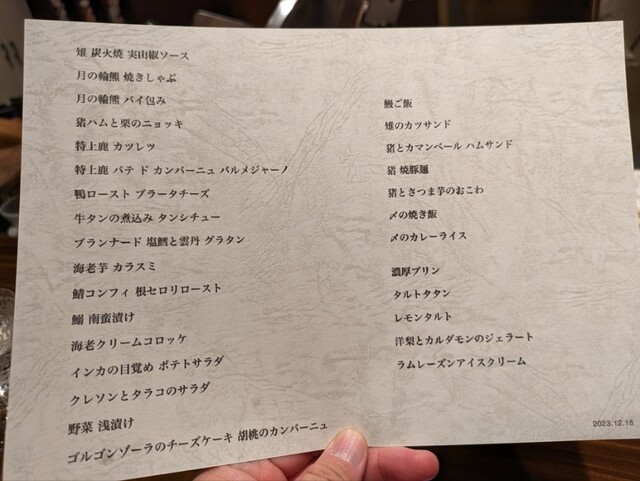 雉 炭火焼 実山椒ソース
月の輪熊 焼きしゃぶ
月の輪熊 パイ包み
猪ハムと栗のニョッキ
特上鹿 カツレツ
特上鹿 パテ ド カンパーニュ パルメジャーノ
鴨ロースト ブラータチーズ
牛タンの煮込み タンシチュー
ブランナード 塩鱈と雲丹 グラタン
海老芋 カラスミ
鯖コンフィ 根セロリロースト
鰯 南蛮漬け
海老クリームコロッケ
インカの目覚め ポテトサラダ
クレソンとタラコのサラダ
野菜 浅漬け
ゴルゴンゾーラのチーズケーキ 胡桃のカンパーニュ
鰻ご飯
雉のカツサンド
猪とカマンベール ハムサンド
猪 焼豚麺
猪とさつま芋のおこわ
〆の焼き飯
〆のカレーライス
濃厚プリン
タルトタタン
レモンタルト
洋梨とカルダモンのジェラート
ラムレーズンアイスクリーム
2023.12.18